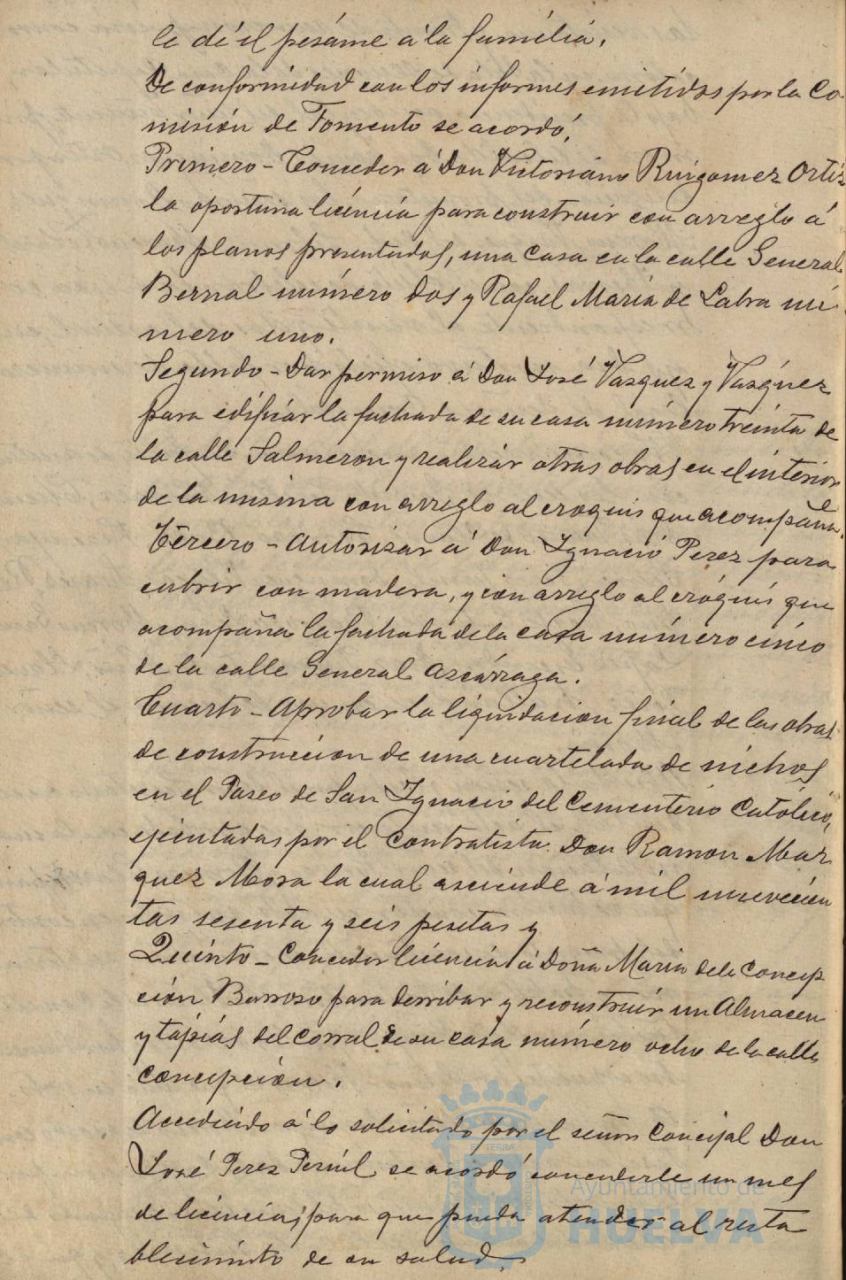 le dé el pesáme á la família.
De conformidad con los informes emitidos por la Co-
misión de Fomento se acordó:
Primero - Conceder á Don Victoriano Ruigomez Ortiz
la oportuna licéncia para construir con arreglo á
los planos presentados, una casa en la calle General
Bernal número dos y Rafael Maria de Labra nú-
mero uno.
Segundo - Dar permiso á Don José Vazquez y Vazquez
para edificar la fachada de su casa número treinta de
la calle Salmeron y realizar otras obras en el intérior
de la misma con arreglo al croquis que acompaña.
Tércero - Autorizar á Don Ignacio Perez para
cubrir con madera, y con arreglo al cróquis que
acompaña la fachada de la casa número cinco
de la calle General Azcárraga.
Cuarto - Aprobar la liquidacion final de las obras
de construccion de una cuartelada de nichos
en el Paseo de San Ignacio del Cementerio Católico,
ejecutadas por el Contratista Don Ramon Mar
quez Mora la cual asciende á mil novecien
tas sesenta y seis pesetas y
Quinto - Conceder licencia á Doña Maria de la Concep
ción Barroso para derribar y reconstruir un Almacen
y tápias del corral de su casa número ocho de la calle
Concepción.
Accediendo á lo solicitado por el señor Concejal Don
José Perez se acordó concederle un mes
de licéncia, para que pueda atender al resta
blecimiento de su salud.
Ayuntamiento de
HUELVA